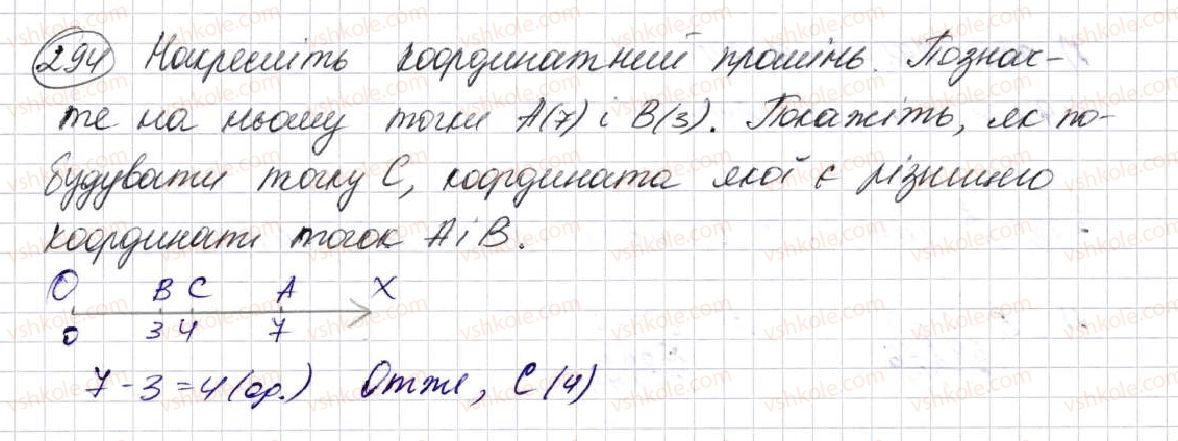 294 Накресліть координатний промінь. Познач-
те на ньому точки A(7) і B(3). Покажіть, як по-
будувати точку C, координата якої є різницею
координат точок A і B.
O B C A X
0 3 4 7
7 - 3 = 4 (ор.) Отже, C (4)